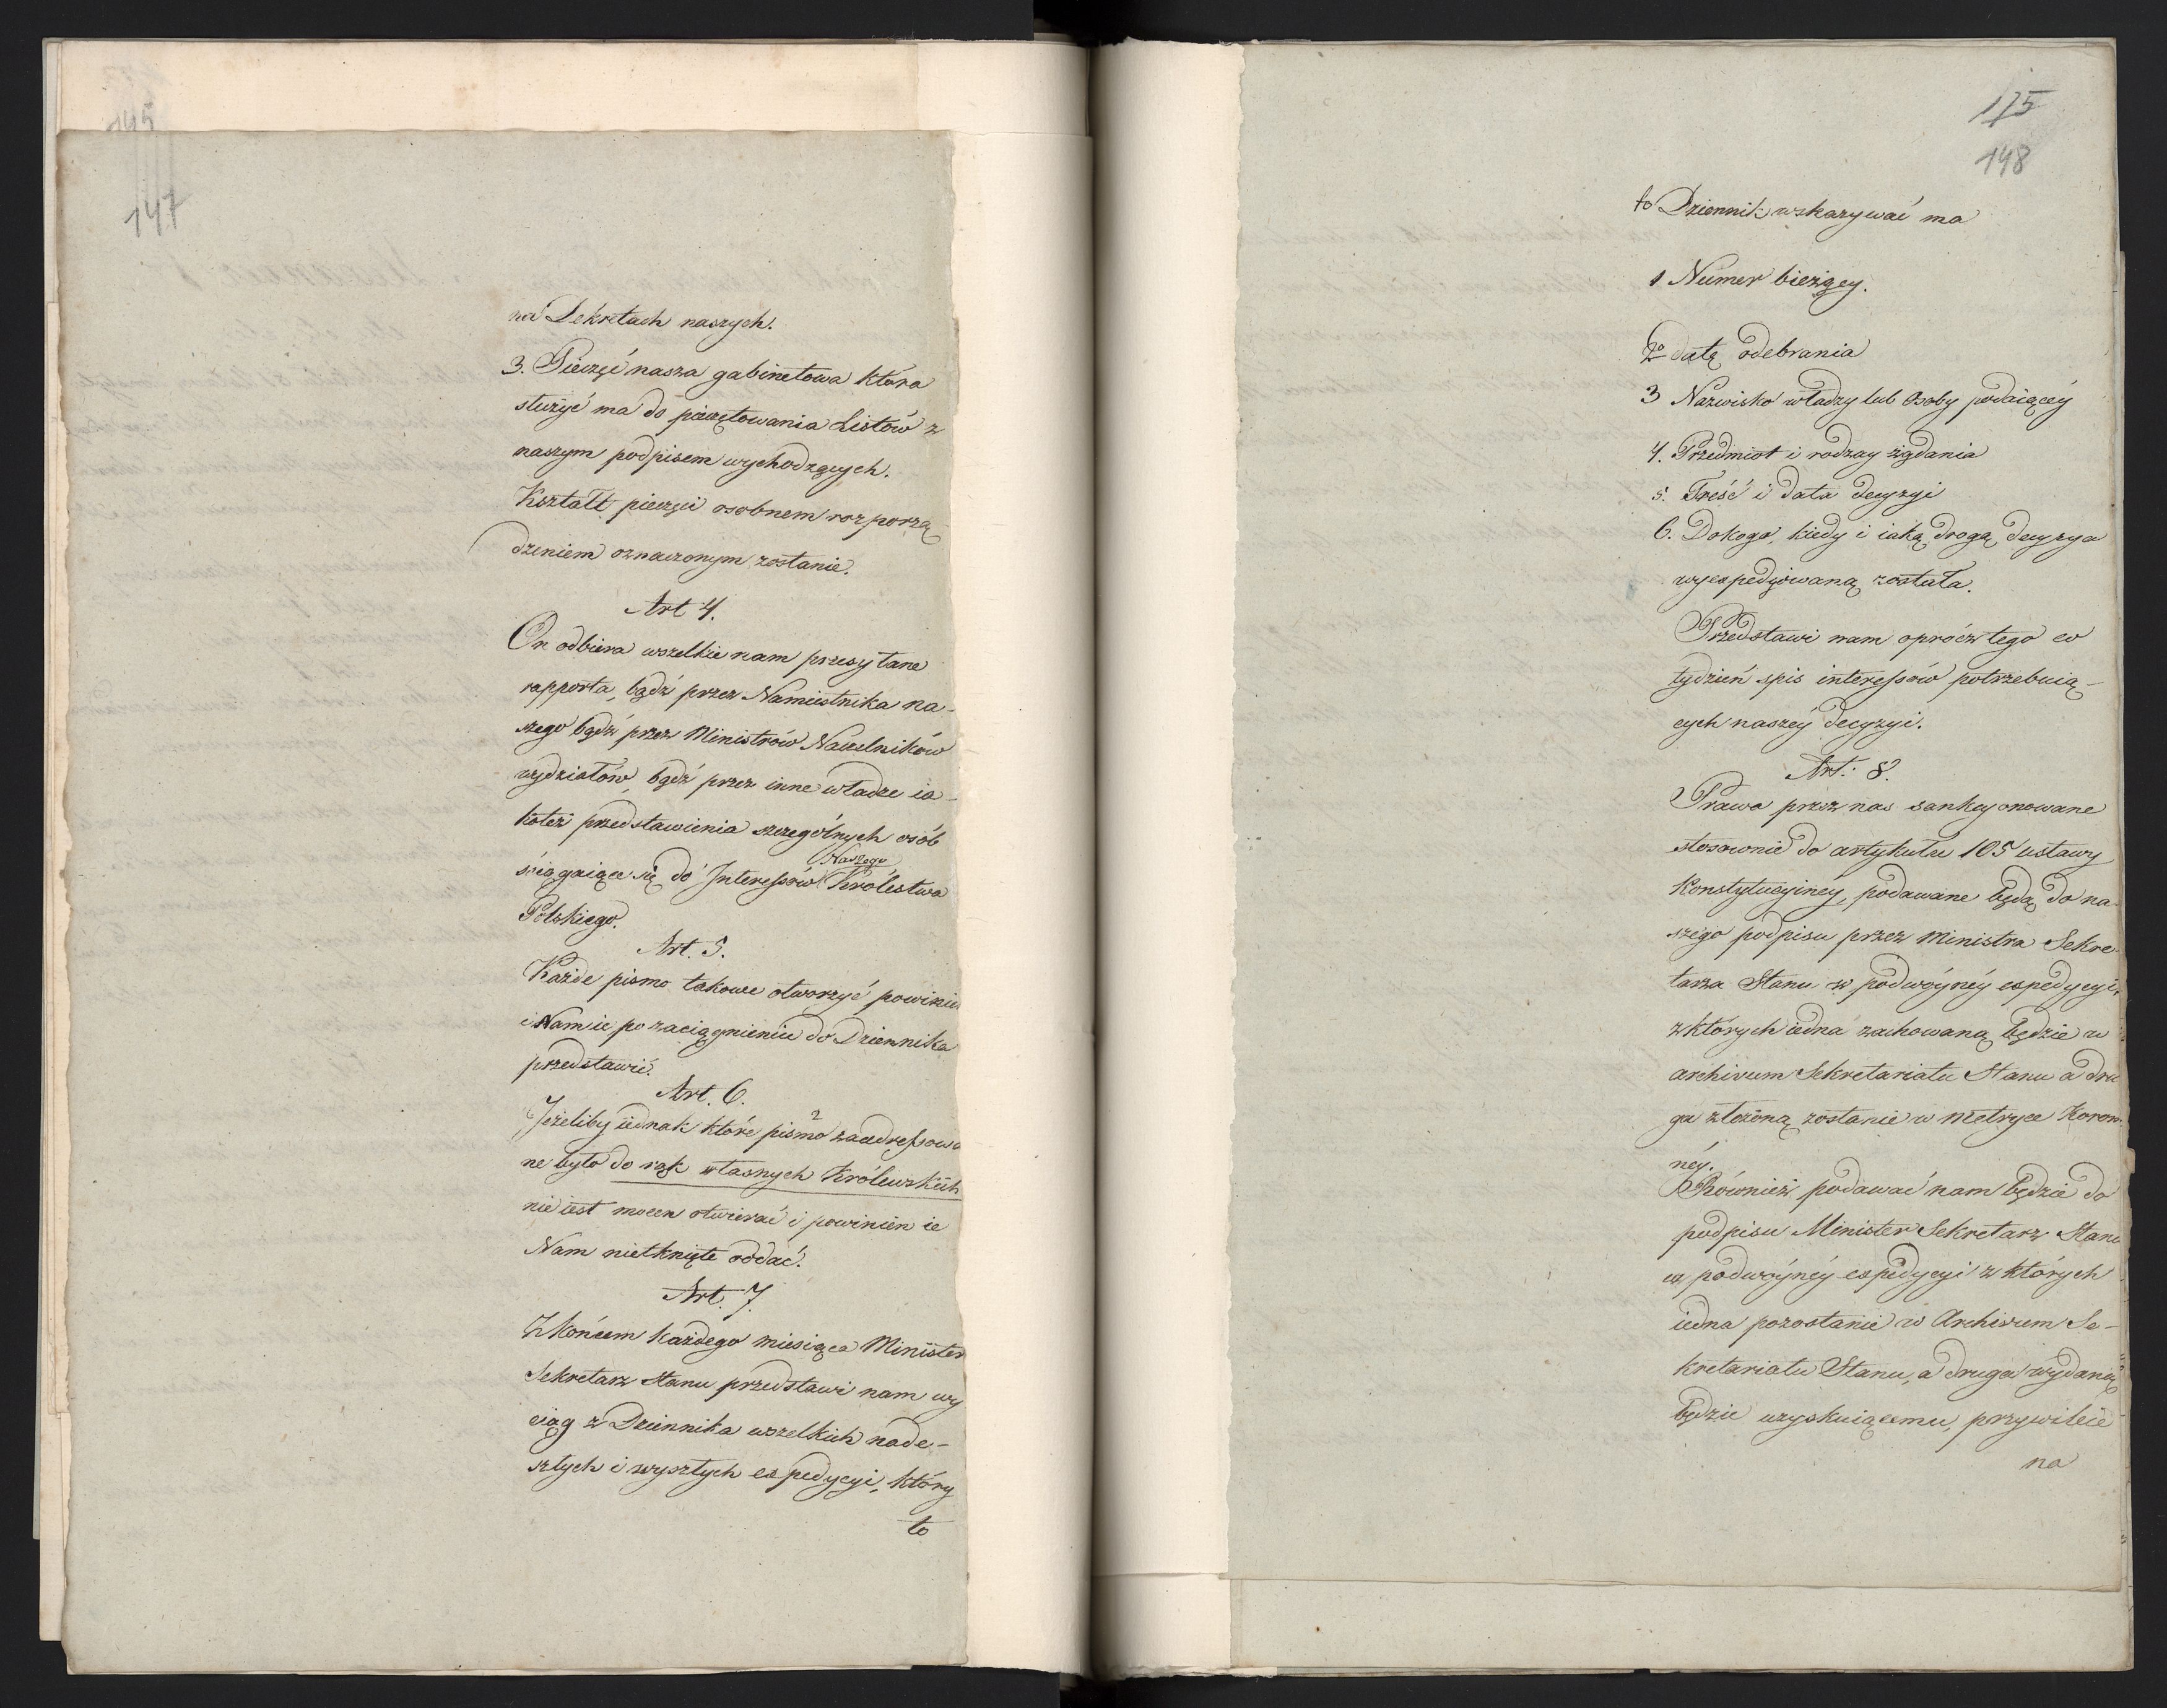 145
147
na Dekretach naszych.
3. Pieczęć nasza gabinetowa która
służyć ma do pieczętowania Listów z
naszym podpisem wychodzących.
Kształt pieczęci osobnem rozporzą
dzeniem oznaczonym zostanie.
Art 4.
On odbiera wszelkie nam przesyłane
rapporta, bądź przez Namiestnika na-
szego bądź przez Ministrów Naczelników
wydziałów, bądź przez inne władze ia-
koteż przedstawienia szczególnych osób
Naszego
ściągaiące się do Interessów Królestwa
Polskiego.
Art. 5.
Każde pismo takowe otworzyć powinien
i Nam ie po zaciągnieniu do Dziennika
przedstawić.
Art. 6.
Jeżeliby iednak które pismo zaadresowa
ne było do rąk własnych Królewskich
nie iest mocen otwierać i powinien ie
Nam nietknięte oddać.
Art. 7.
Z końcem każdego miesiąca Minister
Sekretarz Stanu przedstawi nam wy
ciąg z Dziennika wszelkich nade-
szłych i wyszłych espedycyi, który
to
175
148
to Dziennik wskazywać ma
1 Numer bieżący.
2o datę odebrania
3 Nazwisko władzy lub Osoby podaiącey
4. Przedmiot i rodzay żądania
5. Treść i data decyzyi
6. Dokogo, kiedy i iaką drogą decyzya
wyespedyiowaną została.
Przedstawi nam oprócz tego co
tydzień spis interessów potrzebuią-
cych naszéy decyzyi.
Art: 8.
Prawa przez nas sankcyonowane
stosownie do artykułu 105 ustawy
Konstytucyinéy, podawane będą do na-
szego podpisu przez Ministra Sekre-
tarza Stanu w podwóynéy espedycyi,
z których iedna zachowaną będzie w
archivum Sekretariatu Stanu a dru
ga złożoną zostanie w Metryce Koron-
néy.
Również podawać nam będzie do
podpisu Minister Sekretarz Stanu
w podwóynéy espedycyi z których
iedna pozostanie w Archivum Se-
kretariatu Stanu, a druga wydaną
będzie uzyskuiącemu, przywileie
na